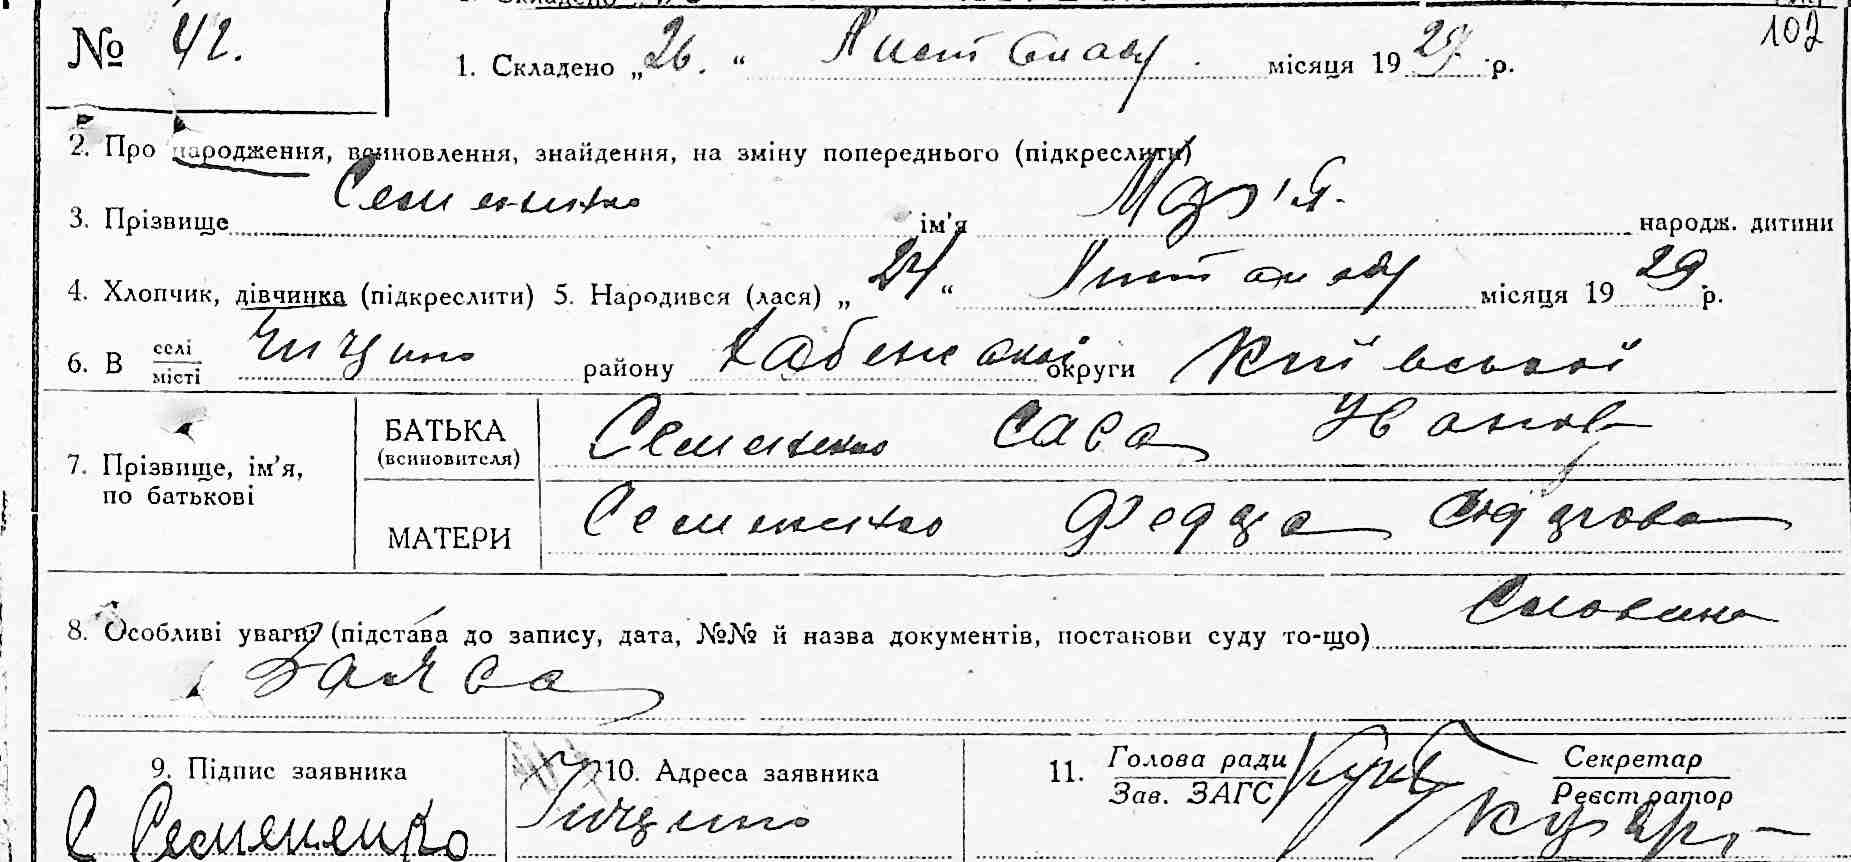 102
№ 42.
1. Складено „26.“ Листопаду місяця 1929 р.
2. Про народження, всиновлення, знайдення, на зміну попереднього (підкреслити)
3. Прізвище Семененко ім'я Мар'я народж. дитини
4. Хлопчик, дівчинка (підкреслити) 5. Народився (лася) „24“ Листопаду місяця 1929 р.
6. В селі/місті району Хабенської округи Київської
7. Прізвище, ім'я, по батькові
БАТЬКА (всиновителя) Семененко Сава Іванов
МАТЕРИ Семененко Федора
8. Особливі уваги: (підстава до запису, дата, №№ й назва документів, постанови суду то-що) Словесна
Заява
9. Підпис заявника
С Семененко
10. Адреса заявника
11. Голова ради / Зав. ЗАГС
Секретар / Реєстратор